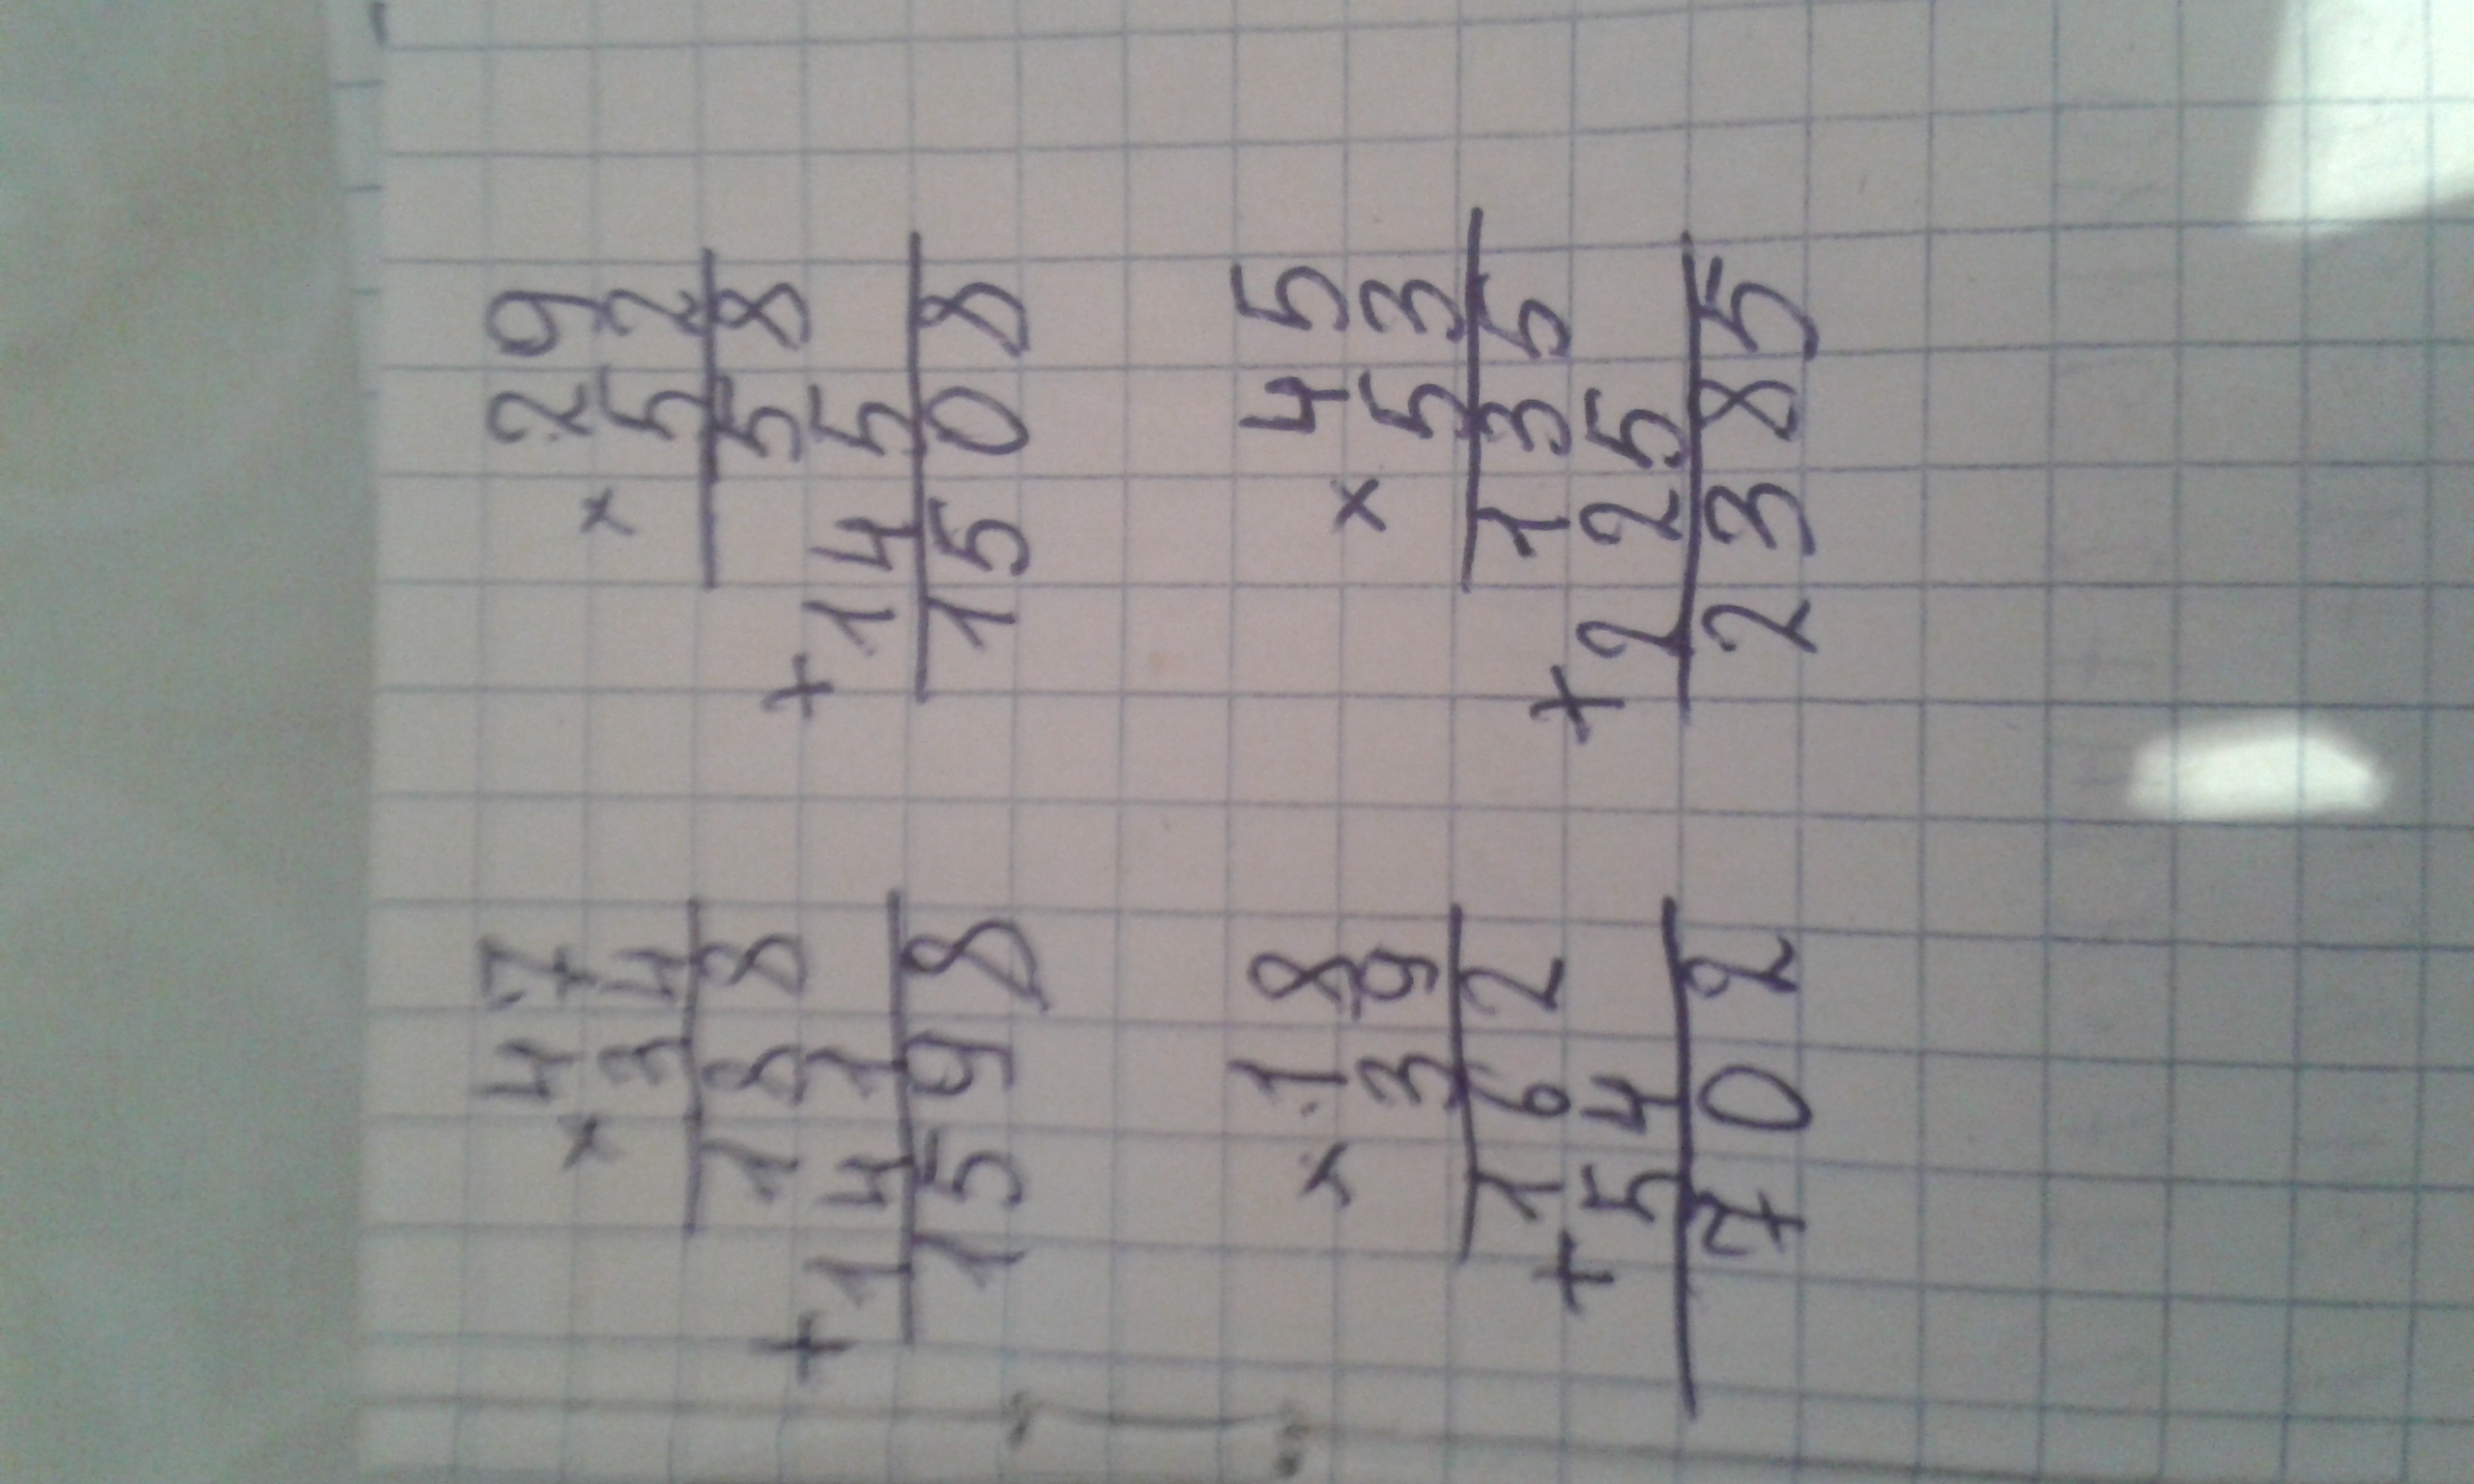 47
×34
188
+141
1598
29
×52
58
+145
1508
18
×39
162
+54
702
45
×53
135
+225
2385